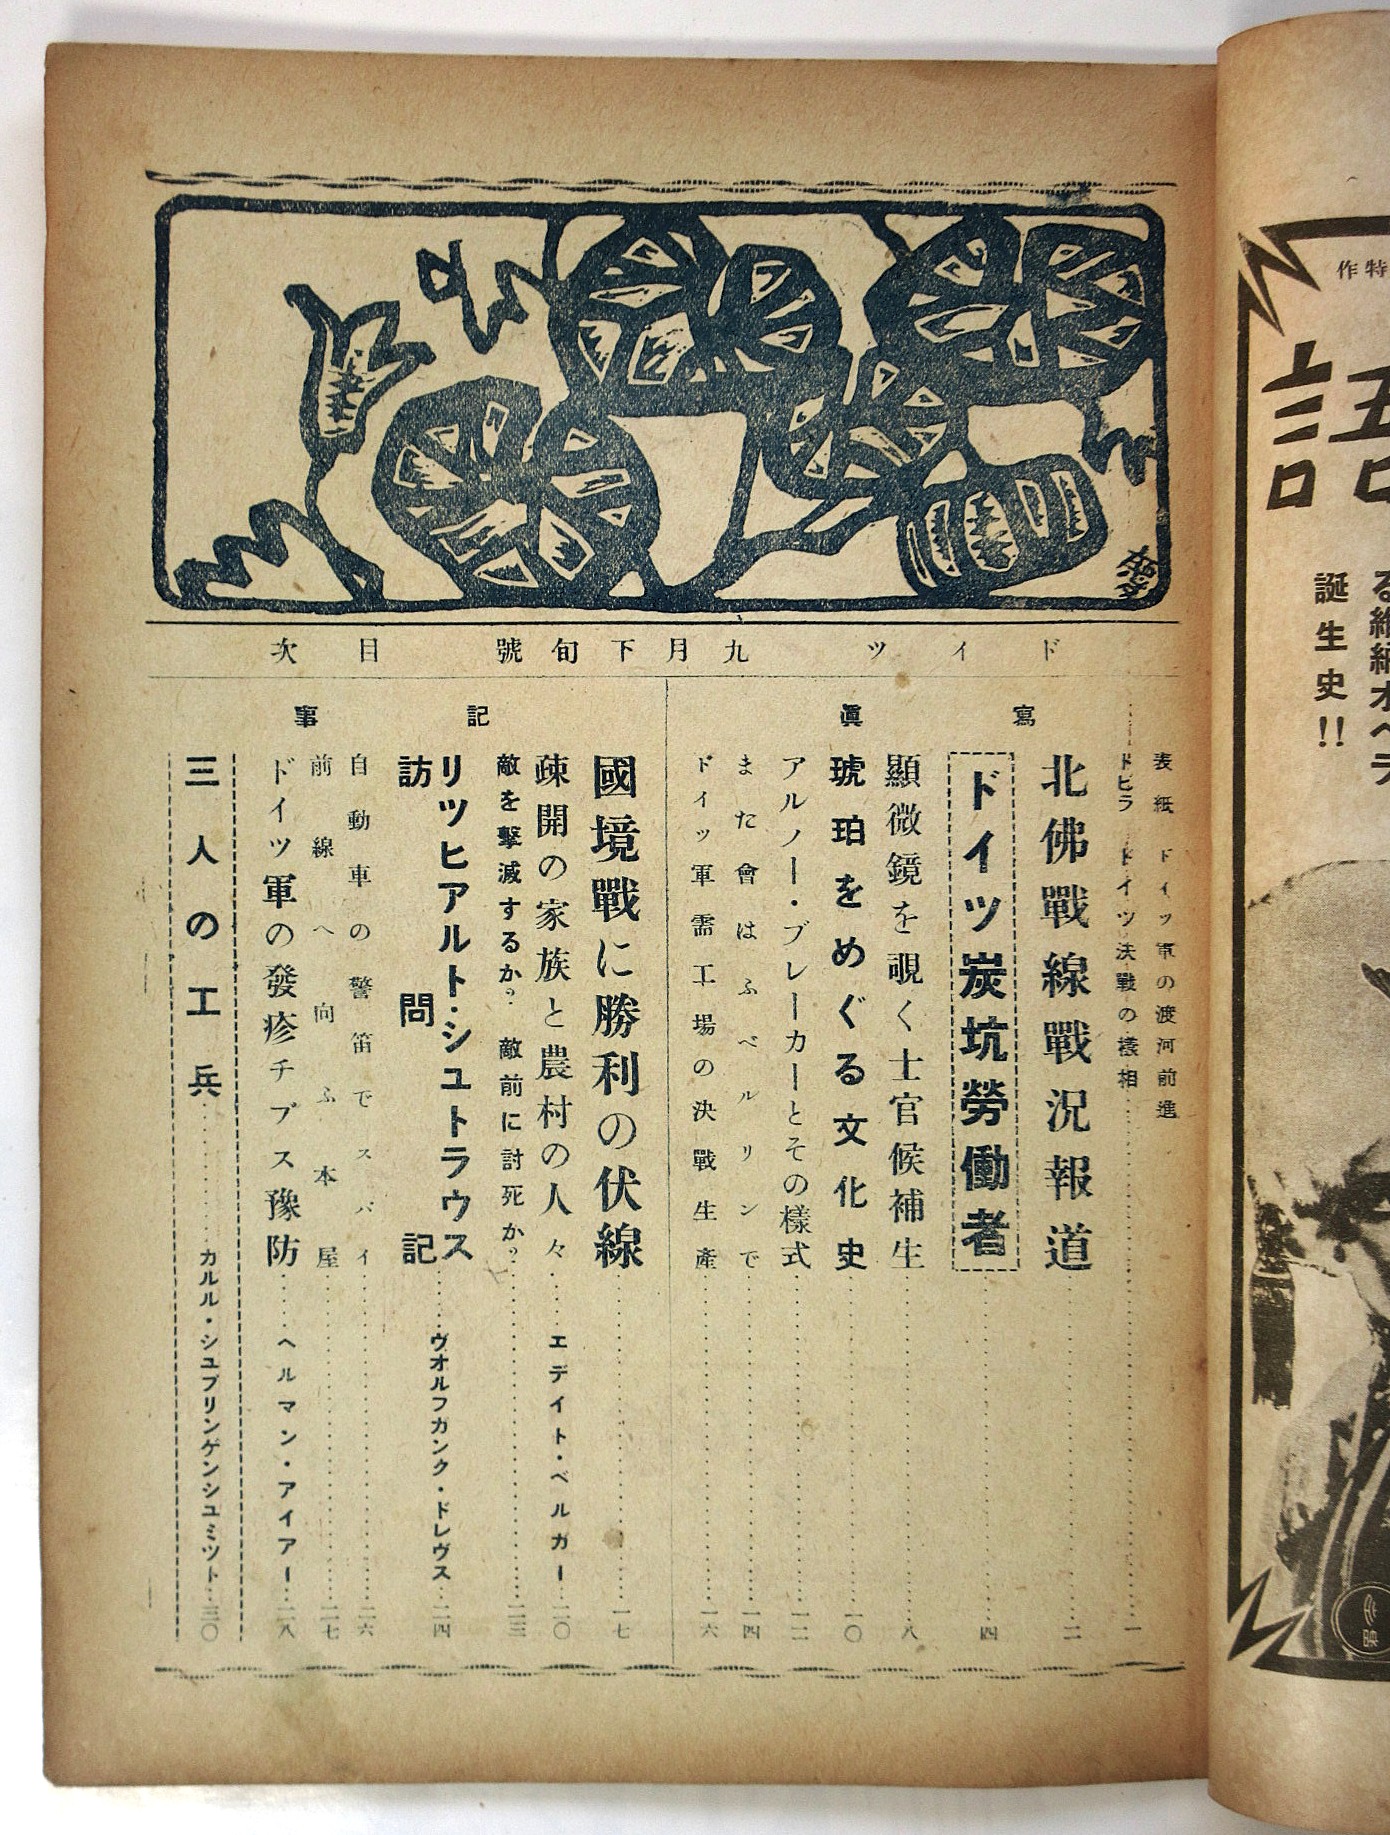 特作
る
誕生史!!
映
ドイツ 九月下旬號 目次
寫眞
表紙 ドイツ軍の渡河前進
トビラ ドイツ決戰の樣相……一
北佛戰線戰況報道……二
ドイツ炭坑勞働者……四
顯微鏡を覗く士官候補生……八
琥珀をめぐる文化史……一〇
アルノー・ブレーカーとその樣式……一二
また會はふベルリンで……一四
ドイツ軍需工場の決戰生產……一六
記事
國境戰に勝利の伏線……一七
疎開の家族と農村の人々……エデイト・ベルガー……二〇
敵を擊滅するか? 敵前に討死か?……二三
リツヒアルト・シユトラウス
訪問記……ヴオルフガンク・ドレヴス……二四
自動車の警笛でスパイ……二六
前線へ向ふ本屋……二七
ドイツ軍の發疹チブス豫防……ヘルマン・アイアー……二八
三人の工兵……カルル・シユプリンゲンシユミツト……三〇